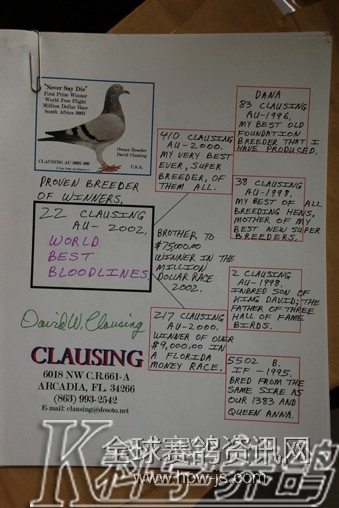 "Never Say Die"
First Prize Winner
World Free Flight
Million Dollar Race
South Africa 2002
Owner-Breeder
David Clausing
CLAUSING AU
U.S.A.
PROVEN BREEDER
OF WINNERS,
22 CLAUSING
AU-2002,
WORLD
BEST
BLOODLINES
David W. Clausing
CLAUSING
6018 NW C.R. 661-A
ARCADIA, FL. 34266
(863) 993-2542
E-mail: clausing@desoto.net
410 CLAUSING
AU-2000.
MY VERY BEST
EVER, SUPER
BREEDER, OF
THEM ALL.
BROTHER TO
$75000.00
WINNER IN THE
MILLION
DOLLAR RACE
2002.
217 CLAUSING
AU-2000.
WINNER OF OVER
$9,000.00 IN
A FLORIDA
MONEY RACE.
DANA
83 CLAUSING
AU-1996,
MY BEST OLD
FOUNDATION
BREEDER THAT I
HAVE PRODUCED.
38 CLAUSING
AU-1998.
MY BEST OF ALL
BREEDING HENS,
MOTHER OF MY
BEST NEW SUPER
BREEDERS.
2 CLAUSING
AU-1998.
INBRED SON OF
KING DAVID; THE
FATHER OF THREE
HALL OF FAME
BIRDS.
5502 B.
IF-1995.
BRED FROM THE
SAME SIRE AS
OUR 1383 AND
QUEEN ANNA.
全球赛鸽资讯网
www.hpw-js.com
K科学赛鸽